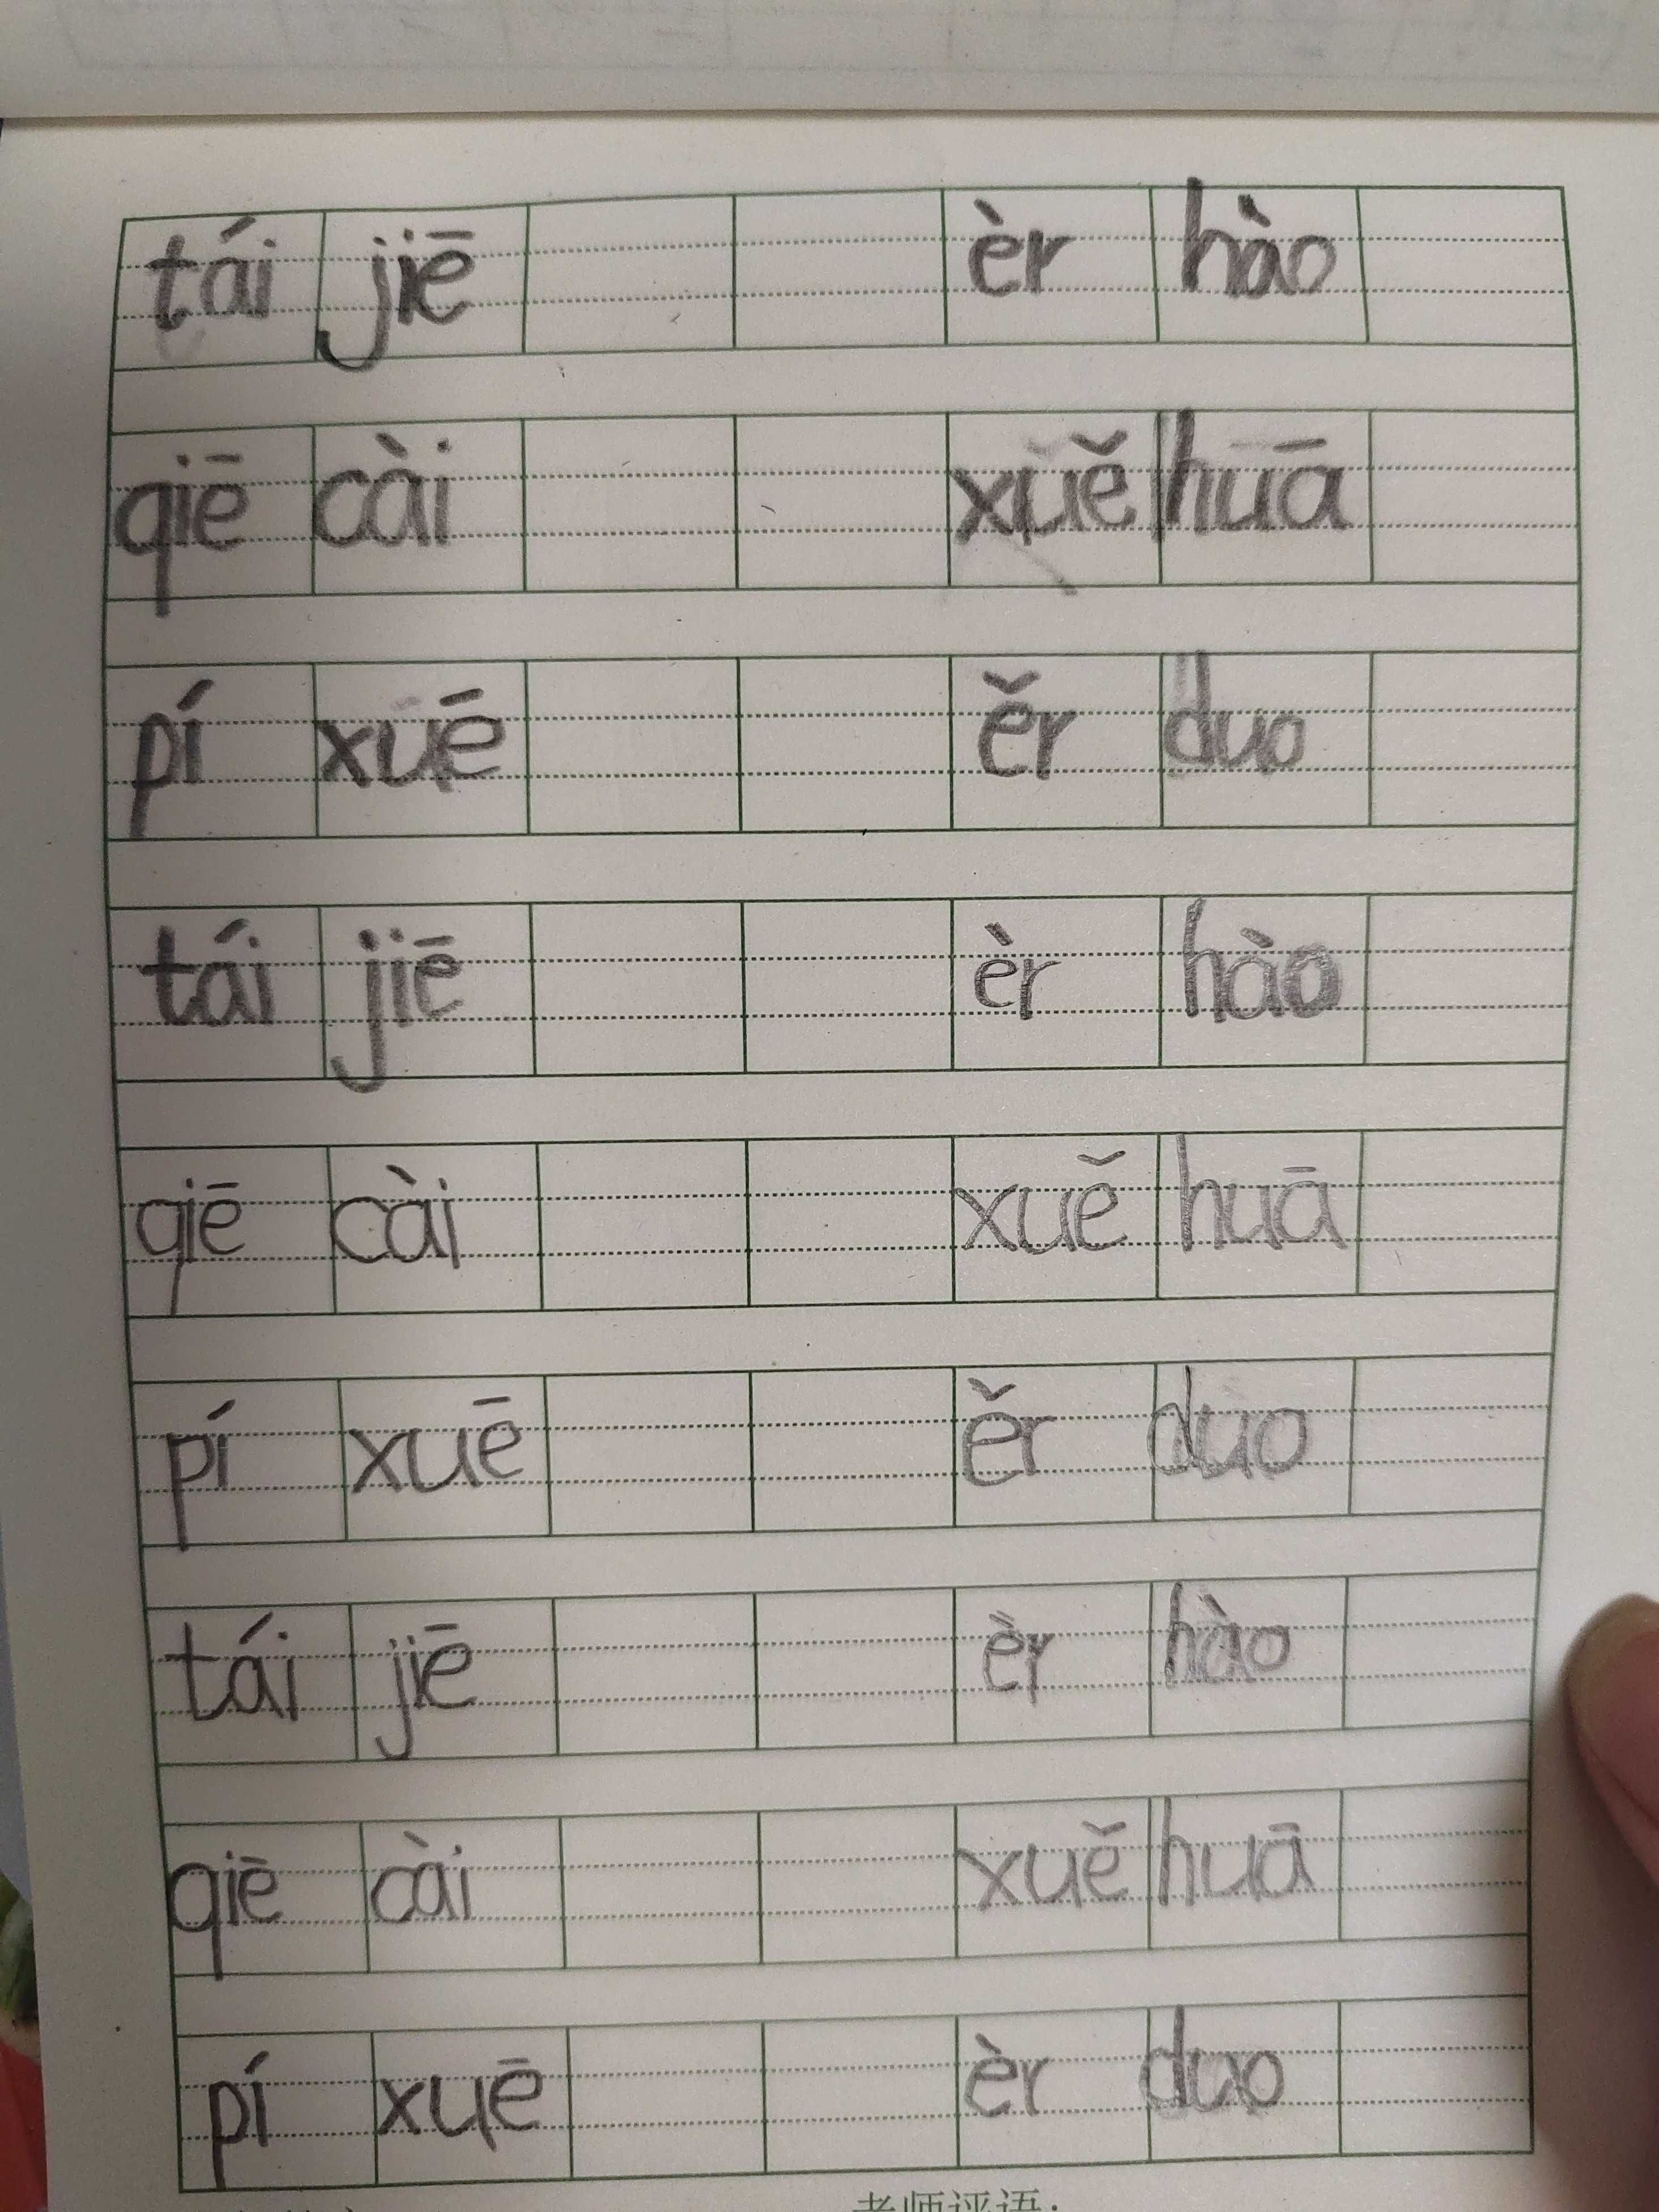 tái jiē èr hào
qiē cài xuě huā
pí xuē ěr duo
tái jiē èr hào
qiē cài xuě huā
pí xuē ěr duo
tái jiē èr hào
qiē cài xuě huā
pí xuē èr duo
老师评语: